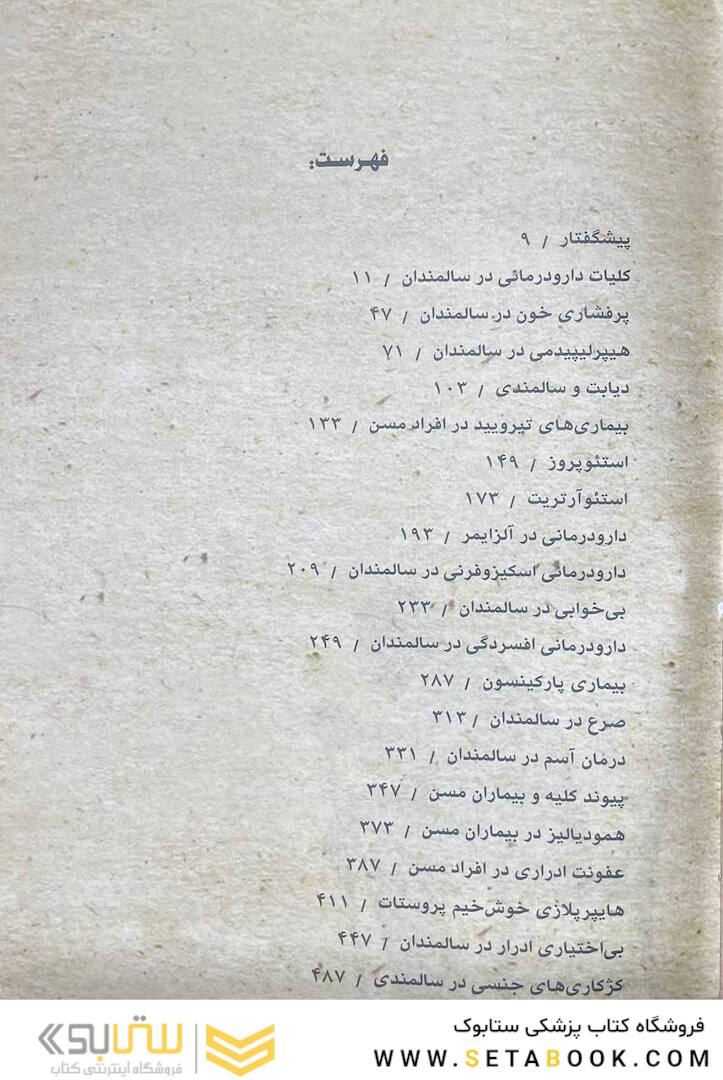 فهرست:
پیشگفتار / ۹
کلیات دارودرمانی در سالمندان / ۱۱
پرفشاری خون در سالمندان / ۴۷
هیپرلیپیدمی در سالمندان / ۷۱
دیابت و سالمندی / ۱۰۳
بیماری‌های تیرویید در افراد مسن / ۱۳۳
استئوپروز / ۱۴۹
استئوآرتریت / ۱۷۳
دارودرمانی در آلزایمر / ۱۹۳
دارودرمانی اسکیزوفرنی در سالمندان / ۲۰۹
بی‌خوابی در سالمندان / ۲۳۳
دارودرمانی افسردگی در سالمندان / ۲۴۹
بیماری پارکینسون / ۲۸۷
صرع در سالمندان / ۳۱۳
درمان آسم در سالمندان / ۳۳۱
پیوند کلیه و بیماران مسن / ۳۴۷
همودیالیز در بیماران مسن / ۳۷۳
عفونت ادراری در افراد مسن / ۳۸۷
هایپرپلازی خوش‌خیم پروستات / ۴۱۱
بی‌اختیاری ادرار در سالمندان / ۴۴۷
کژکاری‌های جنسی در سالمندی / ۴۸۷
فروشگاه کتاب پزشکی ستابوک
WWW.SETABOOK.COM
ستابوک
فروشگاه اینترنتی کتاب